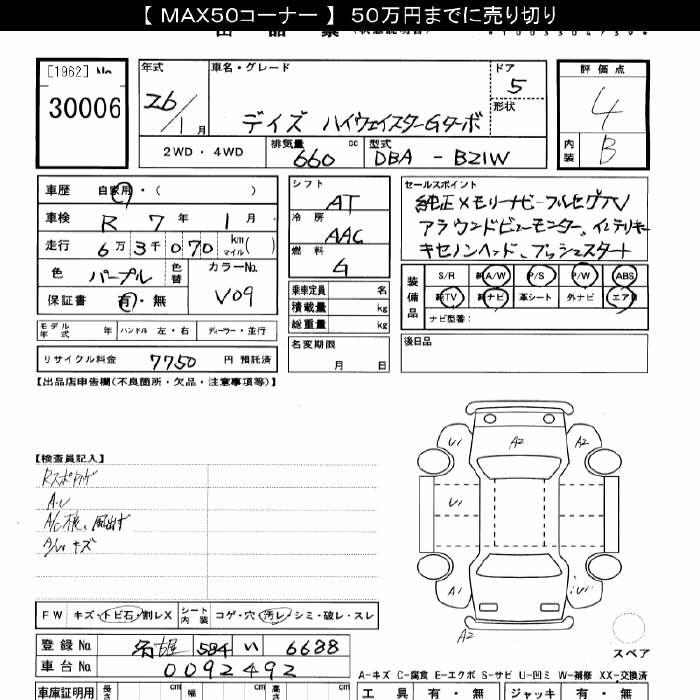 【 MAX50コーナー 】 50万円までに売り切り
[1962] No
30006
年式 車名・グレード ドア 評価点
26/1月 デイズ ハイウェイスターGターボ 5 4
形状
2WD・4WD 排気量 660 cc 型式 DBA - B21W 内装 B
車歴 自家用・( )
車検 R 7年 1月
走行 6万3千070 km マイル( )
色 パープル 色替 カラーNo. V09
保証書 有・無
モデル年式 年 ハンドル 左・右 ディーラー・並行
リサイクル料金 7750 円 預託済
シフト AT
冷房 AAC
燃料 G
乗車定員 名
積載量 kg
総重量 kg
名変期限
月 日
セールスポイント
純正メモリーナビ-フルセグTV
アラウンドビューモニター、インテリキー
キセノンヘッド、プッシュスタート
装備品 S/R 純A/W P/S P/W ABS
純TV 純ナビ 革シート 外ナビ エアB
ナビ型番:
後日品
【出品店申告欄(不良箇所・欠品・注意事項等)】
【検査員記入】
A・U
A/Wキズ
U1 A2 A2
U1
A1 U1
A2
スペア
FW キズ・トビ石・割レX シート内装 コゲ・穴・汚レ・シミ・破レ・スレ
登録No. 名古屋 584 い 6638
車台No. 0092492
A-キズ C-腐食 E-エクボ S-サビ U-凹ミ W-補修 XX-交換済
車庫証明用 長さ cm 幅 cm 高さ cm 工具 有・無 ジャッキ 有・無